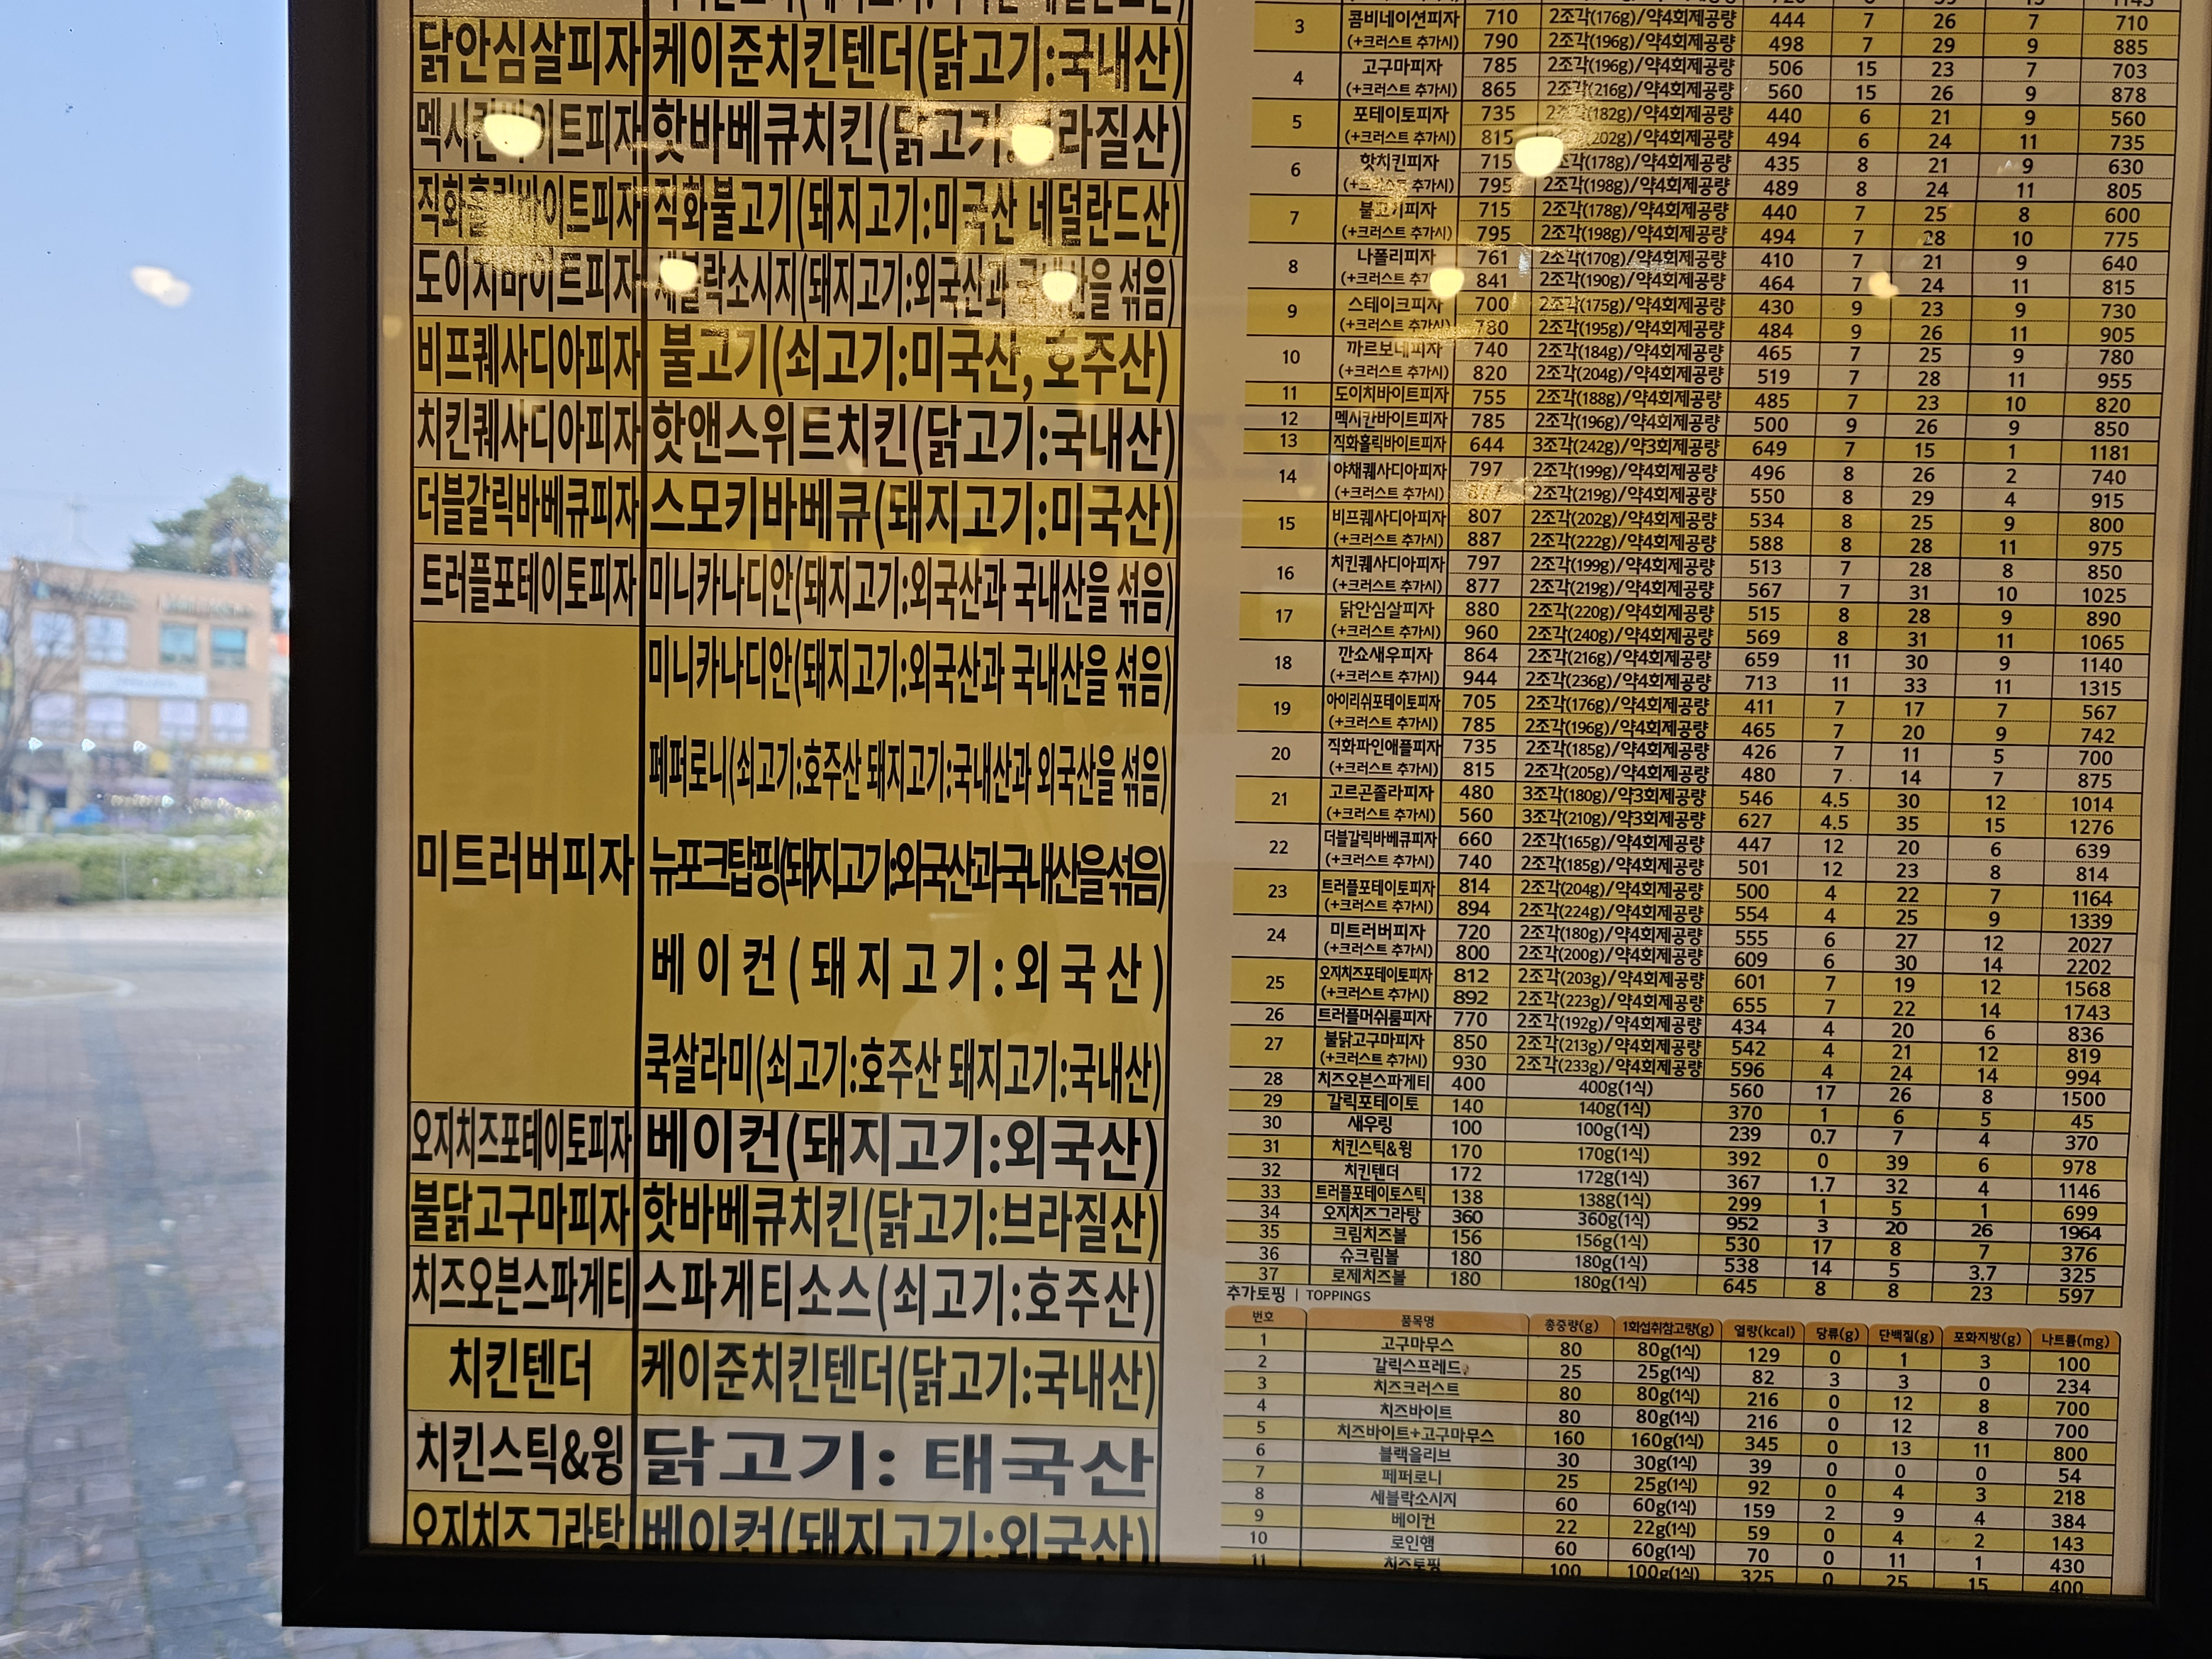 닭안심살피자 케이준치킨텐더(닭고기:국내산)
핫바베큐치킨(닭고기:브라질산)
직화불고기(돼지고기:미국산 네덜란드산)
도이치바이트피자 세블락소시지(돼지고기:외국산과 국내산을 섞음)
비프퀘사디아피자 불고기(쇠고기:미국산, 호주산)
치킨퀘사디아피자 핫앤스위트치킨(닭고기:국내산)
더블갈릭바베큐피자 스모키바베큐(돼지고기:미국산)
트러플포테이토피자 미니카나디안(돼지고기:외국산과 국내산을 섞음)
미니카나디안(돼지고기:외국산과 국내산을 섞음)
페퍼로니(쇠고기:호주산 돼지고기:국내산과 외국산을 섞음)
미트러버피자 뉴포크탑핑(돼지고기:외국산과국내산을섞음)
베이컨(돼지고기:외국산)
쿡살라미(쇠고기:호주산 돼지고기:국내산)
오지치즈포테이토피자 베이컨(돼지고기:외국산)
불닭고구마피자 핫바베큐치킨(닭고기:브라질산)
치즈오븐스파게티 스파게티소스(쇠고기:호주산)
치킨텐더 케이준치킨텐더(닭고기:국내산)
치킨스틱&윙 닭고기: 태국산
오지치즈그라탕 베이컨(돼지고기:외국산)
3 콤비네이션피자 710 2조각(176g)/약4회제공량 444 7 26 7 710
(+크러스트 추가시) 790 2조각(196g)/약4회제공량 498 7 29 9 885
4 고구마피자 785 2조각(196g)/약4회제공량 506 15 23 7 703
(+크러스트 추가시) 865 2조각(216g)/약4회제공량 560 15 26 9 878
5 포테이토피자 735 2조각(182g)/약4회제공량 440 6 21 9 560
(+크러스트 추가시) 815 2조각(202g)/약4회제공량 494 6 24 11 735
6 핫치킨피자 715 2조각(178g)/약4회제공량 435 8 21 9 630
(+크러스트 추가시) 795 2조각(198g)/약4회제공량 489 8 24 11 805
7 불고기피자 715 2조각(178g)/약4회제공량 440 7 25 8 600
(+크러스트 추가시) 795 2조각(198g)/약4회제공량 494 7 28 10 775
8 나폴리피자 761 2조각(170g)/약4회제공량 410 7 21 9 640
(+크러스트 추가시) 841 2조각(190g)/약4회제공량 464 7 24 11 815
9 스테이크피자 700 2조각(175g)/약4회제공량 430 9 23 9 730
(+크러스트 추가시) 780 2조각(195g)/약4회제공량 484 9 26 11 905
10 까르보네피자 740 2조각(184g)/약4회제공량 465 7 25 9 780
(+크러스트 추가시) 820 2조각(204g)/약4회제공량 519 7 28 11 955
11 도이치바이트피자 755 2조각(188g)/약4회제공량 485 7 23 10 820
12 멕시칸바이트피자 785 2조각(196g)/약4회제공량 500 9 26 9 850
13 직화홀릭바이트피자 644 3조각(242g)/약3회제공량 649 7 15 1 1181
14 야채퀘사디아피자 797 2조각(199g)/약4회제공량 496 8 26 2 740
(+크러스트 추가시) 2조각(219g)/약4회제공량 550 8 29 4 915
15 비프퀘사디아피자 807 2조각(202g)/약4회제공량 534 8 25 9 800
(+크러스트 추가시) 887 2조각(222g)/약4회제공량 588 8 28 11 975
16 치킨퀘사디아피자 797 2조각(199g)/약4회제공량 513 7 28 8 850
(+크러스트 추가시) 877 2조각(219g)/약4회제공량 567 7 31 10 1025
17 닭안심살피자 880 2조각(220g)/약4회제공량 515 8 28 9 890
(+크러스트 추가시) 960 2조각(240g)/약4회제공량 569 8 31 11 1065
18 깐쇼새우피자 864 2조각(216g)/약4회제공량 659 11 30 9 1140
(+크러스트 추가시) 944 2조각(236g)/약4회제공량 713 11 33 11 1315
19 아이리쉬포테이토피자 705 2조각(176g)/약4회제공량 411 7 17 7 567
(+크러스트 추가시) 785 2조각(196g)/약4회제공량 465 7 20 9 742
20 직화파인애플피자 735 2조각(185g)/약4회제공량 426 7 11 5 700
(+크러스트 추가시) 815 2조각(205g)/약4회제공량 480 7 14 7 875
21 고르곤졸라피자 480 3조각(180g)/약3회제공량 546 4.5 30 12 1014
(+크러스트 추가시) 560 3조각(210g)/약3회제공량 627 4.5 35 15 1276
22 더블갈릭바베큐피자 660 2조각(165g)/약4회제공량 447 12 20 6 639
(+크러스트 추가시) 740 2조각(185g)/약4회제공량 501 12 23 8 814
23 트러플포테이토피자 814 2조각(204g)/약4회제공량 500 4 22 7 1164
(+크러스트 추가시) 894 2조각(224g)/약4회제공량 554 4 25 9 1339
24 미트러버피자 720 2조각(180g)/약4회제공량 555 6 27 12 2027
(+크러스트 추가시) 800 2조각(200g)/약4회제공량 609 6 30 14 2202
25 오지치즈포테이토피자 812 2조각(203g)/약4회제공량 601 7 19 12 1568
(+크러스트 추가시) 892 2조각(223g)/약4회제공량 655 7 22 14 1743
26 트러플머쉬룸피자 770 2조각(192g)/약4회제공량 434 4 20 6 836
27 불닭고구마피자 850 2조각(213g)/약4회제공량 542 4 21 12 819
(+크러스트 추가시) 930 2조각(233g)/약4회제공량 596 4 24 14 994
28 치즈오븐스파게티 400 400g(1식) 560 17 26 8 1500
29 갈릭포테이토 140 140g(1식) 370 1 6 5 45
30 새우링 100 100g(1식) 239 0.7 7 4 370
31 치킨스틱&윙 170 170g(1식) 392 0 39 6 978
32 치킨텐더 172 172g(1식) 367 1.7 32 4 1146
33 트러플포테이토스틱 138 138g(1식) 299 1 5 1 699
34 오지치즈그라탕 360 360g(1식) 952 3 20 26 1964
35 크림치즈볼 156 156g(1식) 530 17 8 7 376
36 슈크림볼 180 180g(1식) 538 14 5 3.7 325
37 로제치즈볼 180 180g(1식) 645 8 8 23 597
추가토핑 | TOPPINGS
번호 품목명 총중량(g) 1회섭취참고량(g) 열량(kcal) 당류(g) 단백질(g) 포화지방(g) 나트륨(mg)
1 고구마무스 80 80g(1식) 129 0 1 3 100
2 갈릭스프레드 25 25g(1식) 82 3 3 0 234
3 치즈크러스트 80 80g(1식) 216 0 12 8 700
4 치즈바이트 80 80g(1식) 216 0 12 8 700
5 치즈바이트+고구마무스 160 160g(1식) 345 0 13 11 800
6 블랙올리브 30 30g(1식) 39 0 0 0 54
7 페퍼로니 25 25g(1식) 92 0 4 3 218
8 세블락소시지 60 60g(1식) 159 2 9 4 384
9 베이컨 22 22g(1식) 59 0 4 2 143
10 로인햄 60 60g(1식) 70 0 11 1 430
11 치즈토핑 100 100g(1식) 325 0 25 15 400